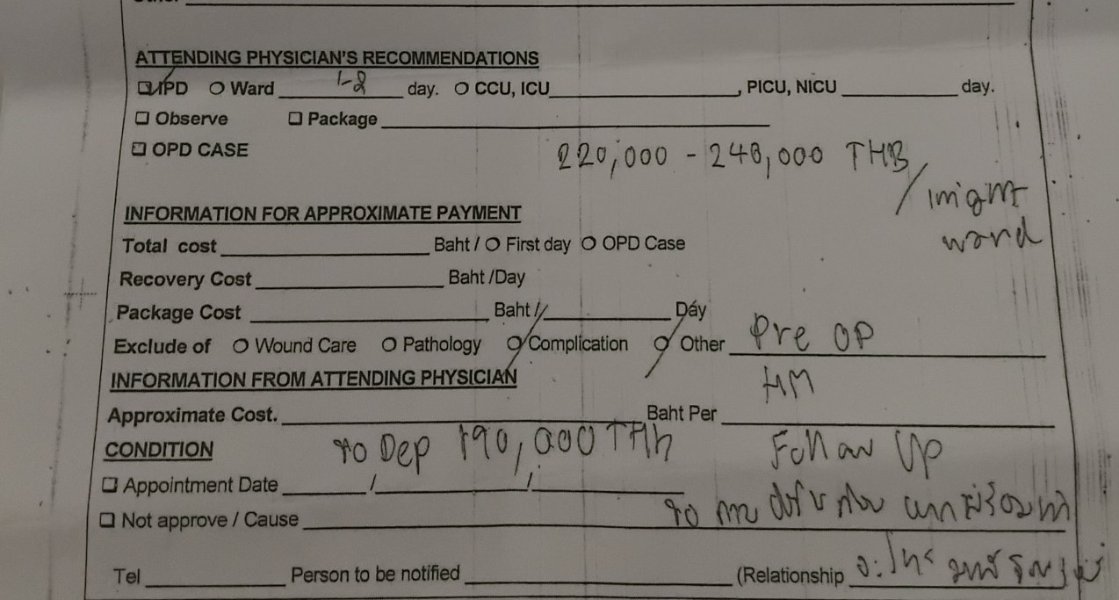 ATTENDING PHYSICIAN'S RECOMMENDATIONS
IPD Ward 1-2 day. CCU, ICU , PICU, NICU day.
Observe Package
OPD CASE
220,000 - 240,000 THB
/ 1night
ward
INFORMATION FOR APPROXIMATE PAYMENT
Total cost Baht / First day OPD Case
Recovery Cost Baht /Day
Package Cost Baht / Day
Exclude of Wound Care Pathology Complication Other Pre OP
HM
INFORMATION FROM ATTENDING PHYSICIAN
Approximate Cost. Baht Per
Follow Up
CONDITION Dep 190,000 THB
Appointment Date / /
Not approve / Cause
Tel Person to be notified (Relationship